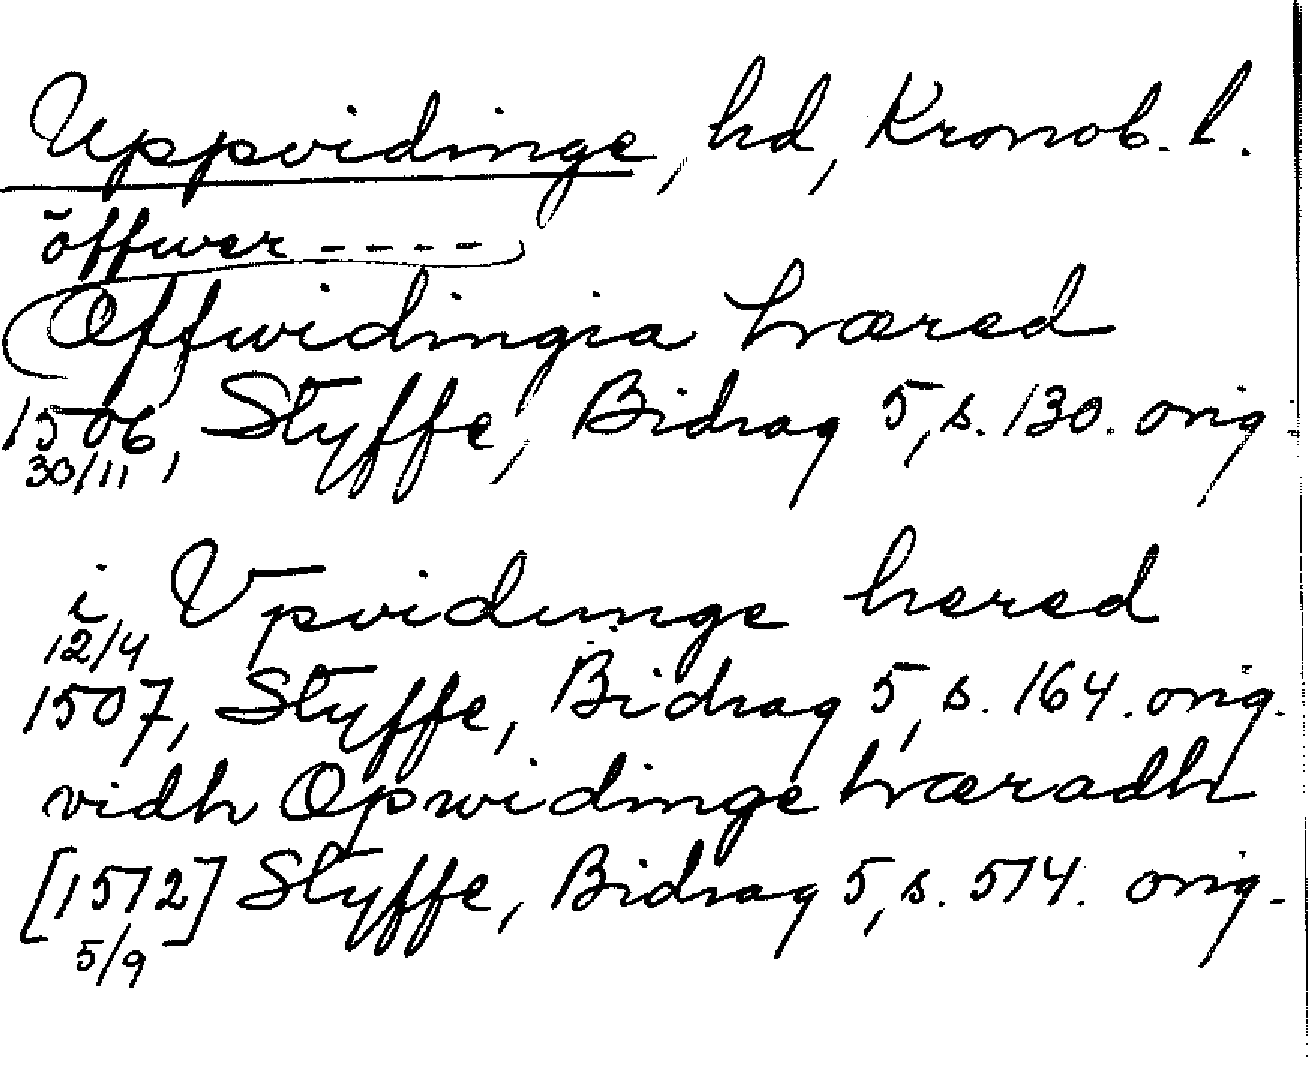 Uppvidinge, hd, Kronob. l.
öffwer ----
Offwidingia hæred
1506, Styffe, Bidrag 5, s. 130. orig.
30/11
i Vpvidunge hered
12/4
1507, Styffe, Bidrag 5, s. 164. orig.
vidh Opwidinge hæradh
[1512] Styffe, Bidrag 5, s. 514. orig.
5/9